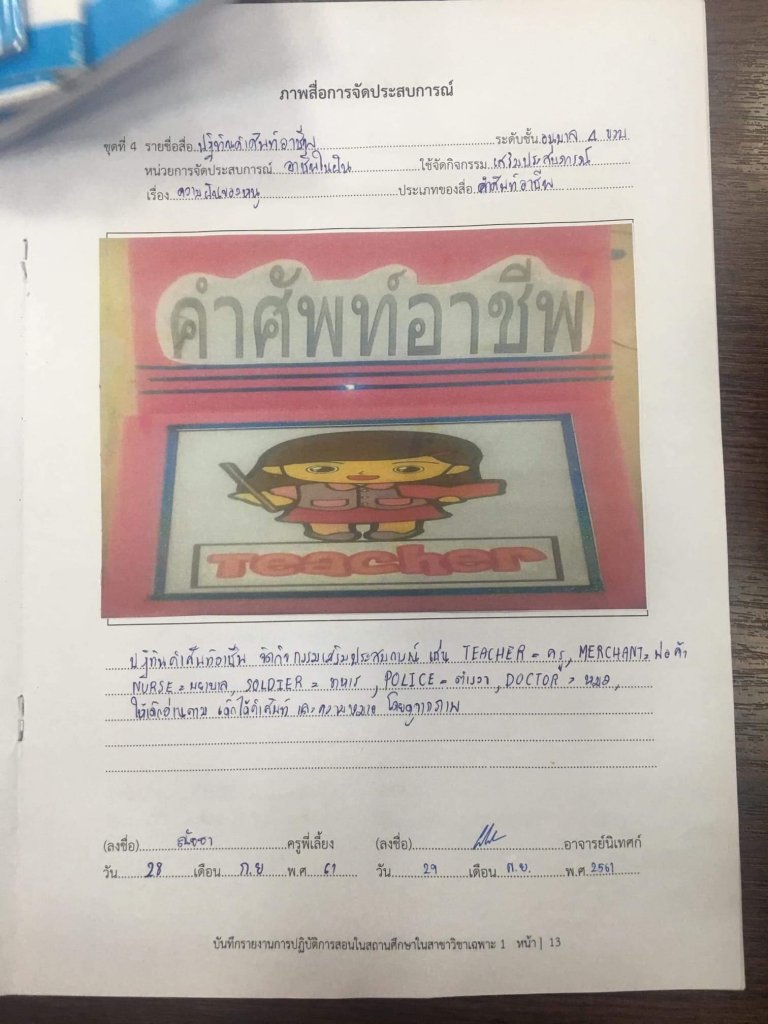 ภาพสื่อการจัดประสบการณ์
ชุดที่ 4 รายชื่อสื่อ ปฏิทินคำศัพท์อาชีพ ระดับชั้น อนุบาล 1 ขวบ
หน่วยการจัดประสบการณ์ อาชีพในฝัน ใช้จัดกิจกรรม เสริมประสบการณ์
เรื่อง ความฝันของหนู ประเภทของสื่อ คำศัพท์อาชีพ
คำศัพท์อาชีพ
Teacher
ปฏิทินคำศัพท์อาชีพ จัดกิจกรรมเสริมประสบการณ์ เช่น TEACHER = ครู, MERCHANT = พ่อค้า
NURSE = พยาบาล, SOLDIER = ทหาร, POLICE = ตำรวจ, DOCTOR = หมอ,
ให้เด็กอ่านตาม เด็กได้คำศัพท์ และความหมาย โดยดูจากภาพ
(ลงชื่อ) ครูพี่เลี้ยง (ลงชื่อ) อาจารย์นิเทศก์
วัน 28 เดือน ก.ย พ.ศ 61 วัน 29 เดือน ก.ย. พ.ศ. 2561
บันทึกรายงานการปฏิบัติการสอนในสถานศึกษาในสาขาวิชาเฉพาะ 1 หน้า | 13